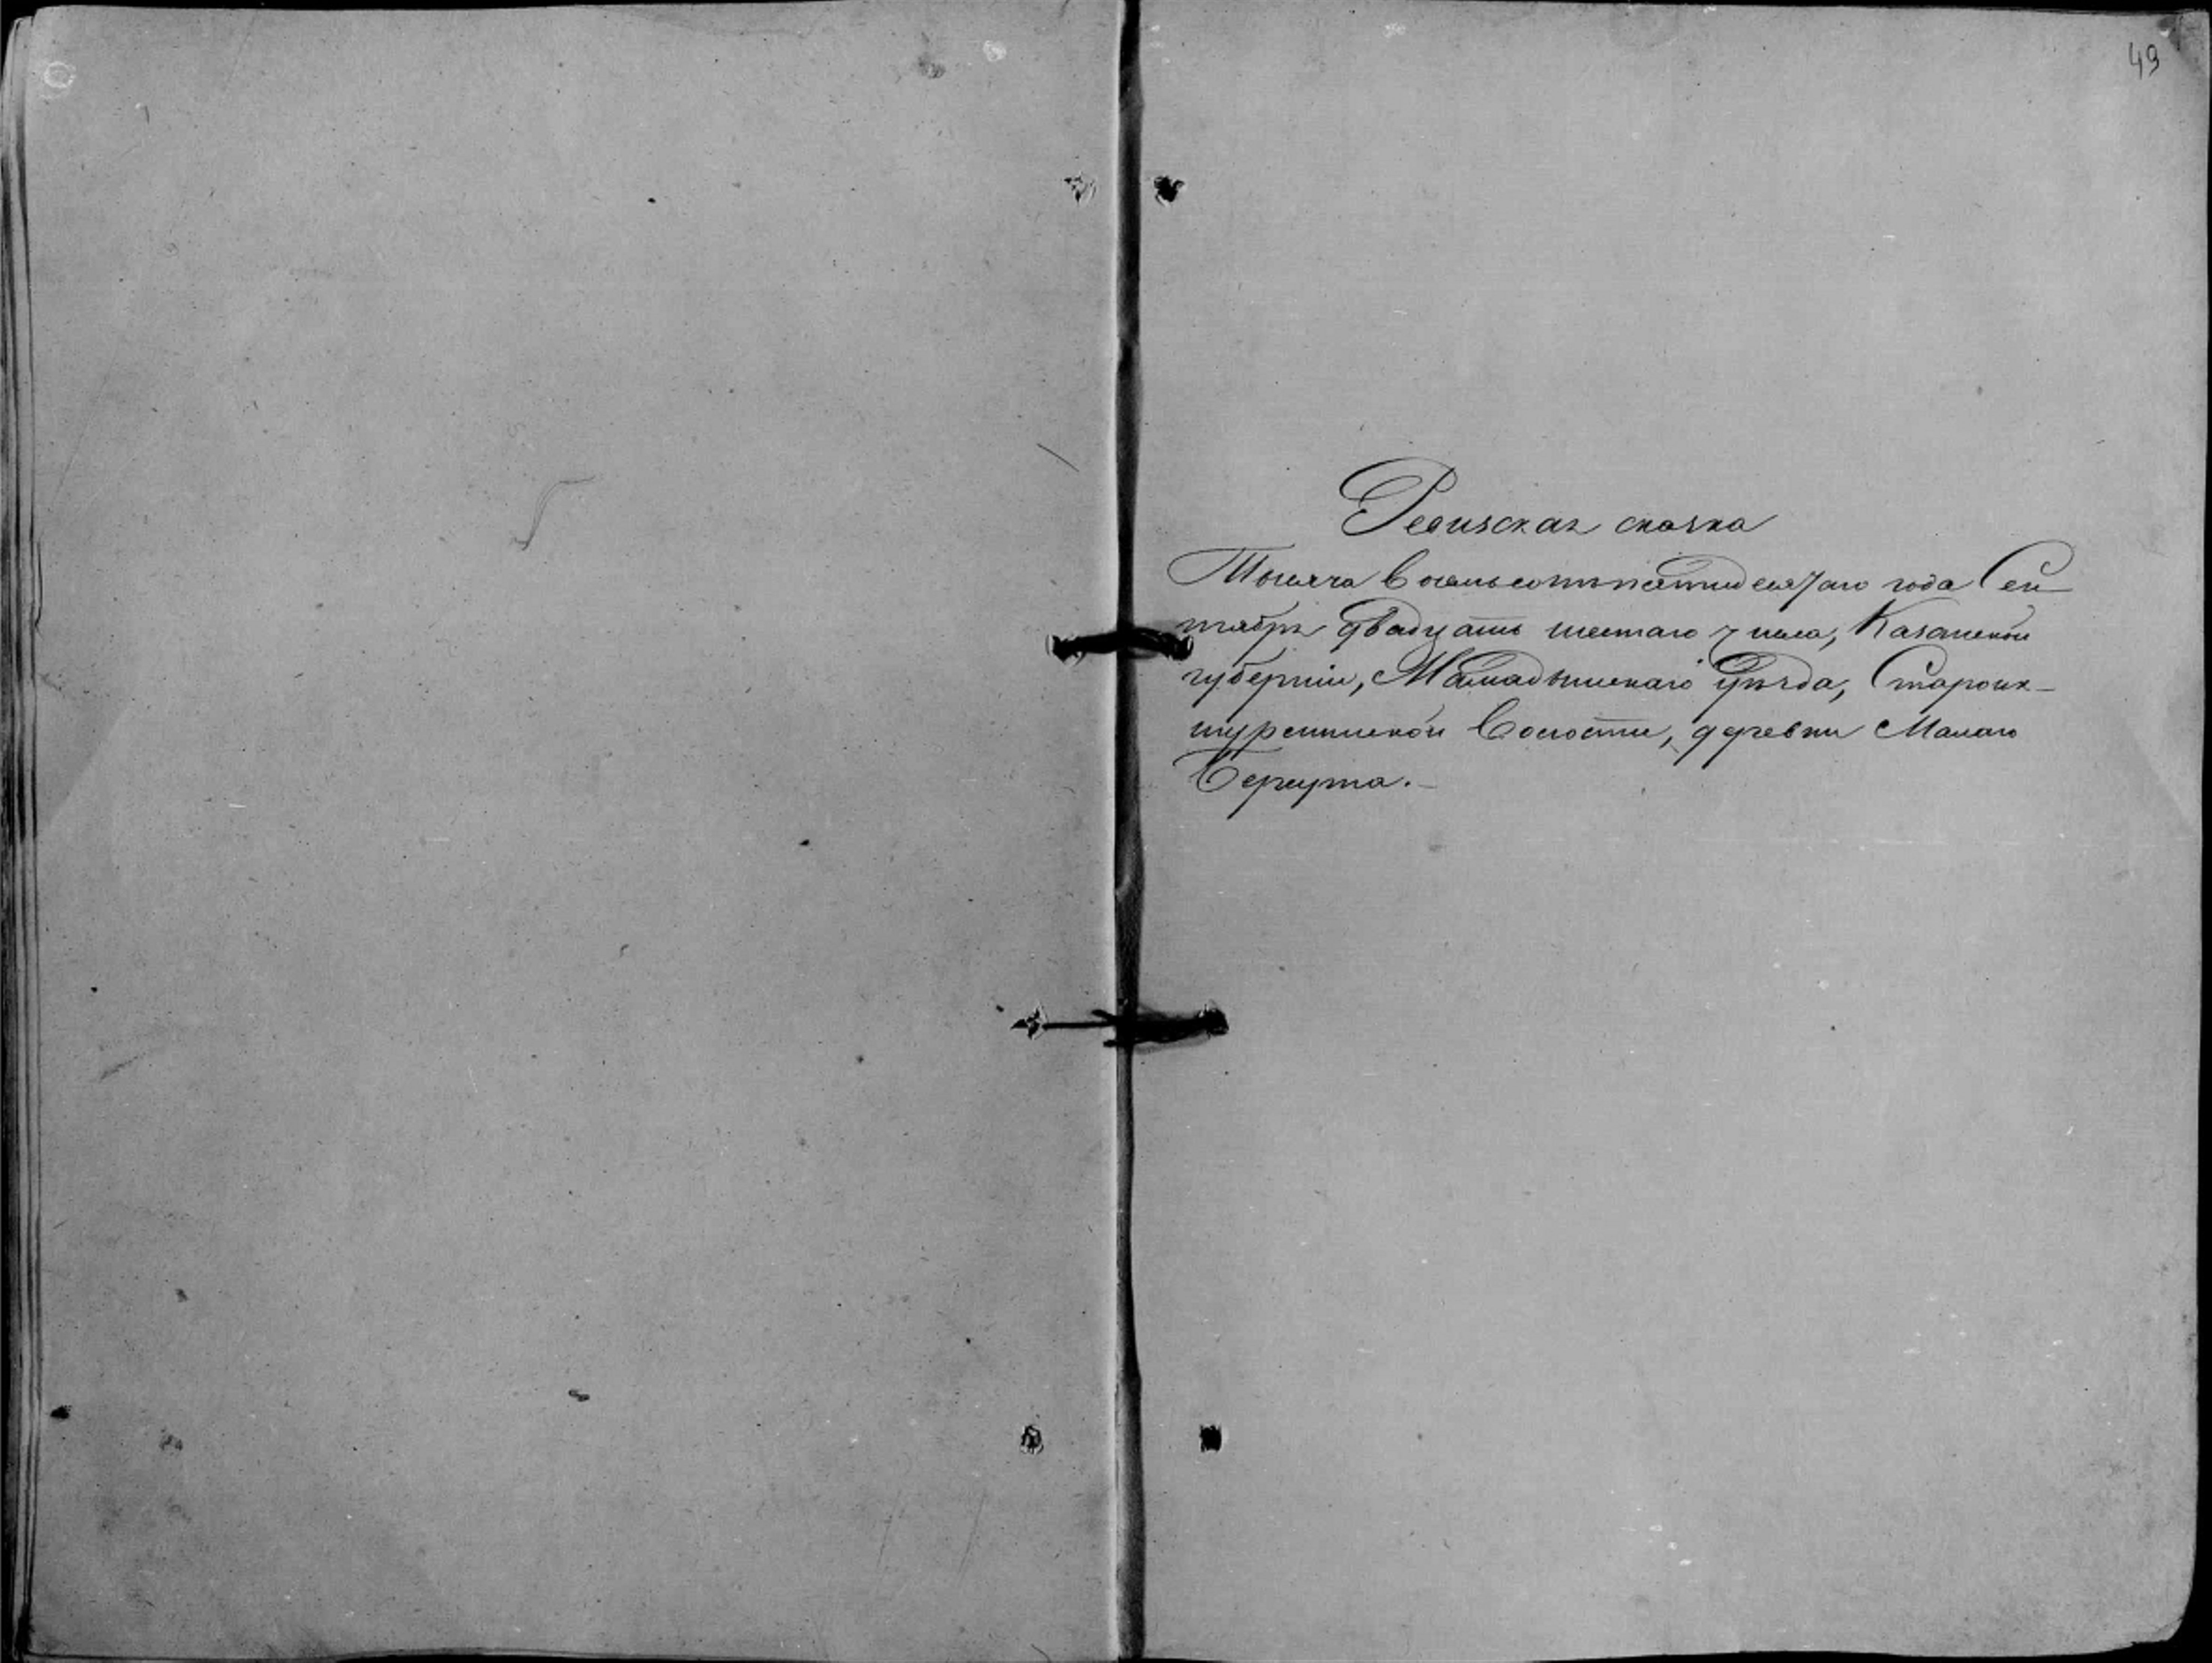 49
Ревизская сказка
Тысяча Восемьсотъ пятидесятаго года Сен-
тября двадцать шестаго числа, Казанской
губерніи, Мамадышскаго уѣзда, Староик-
шурминской Волости, деревни Малаго
Беркута.-